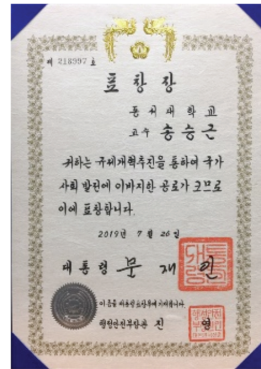 제 218997 호
표창장
동서대학교
교수 송승근
귀하는 규제개혁추진을 통하여 국가
사회 발전에 이바지한 공로가 크므로
이에 표창합니다.
2019년 7월 26일
대통령 문재인
이 증을 대통령표창부에 기입합니다.
행정안전부장관 진 영